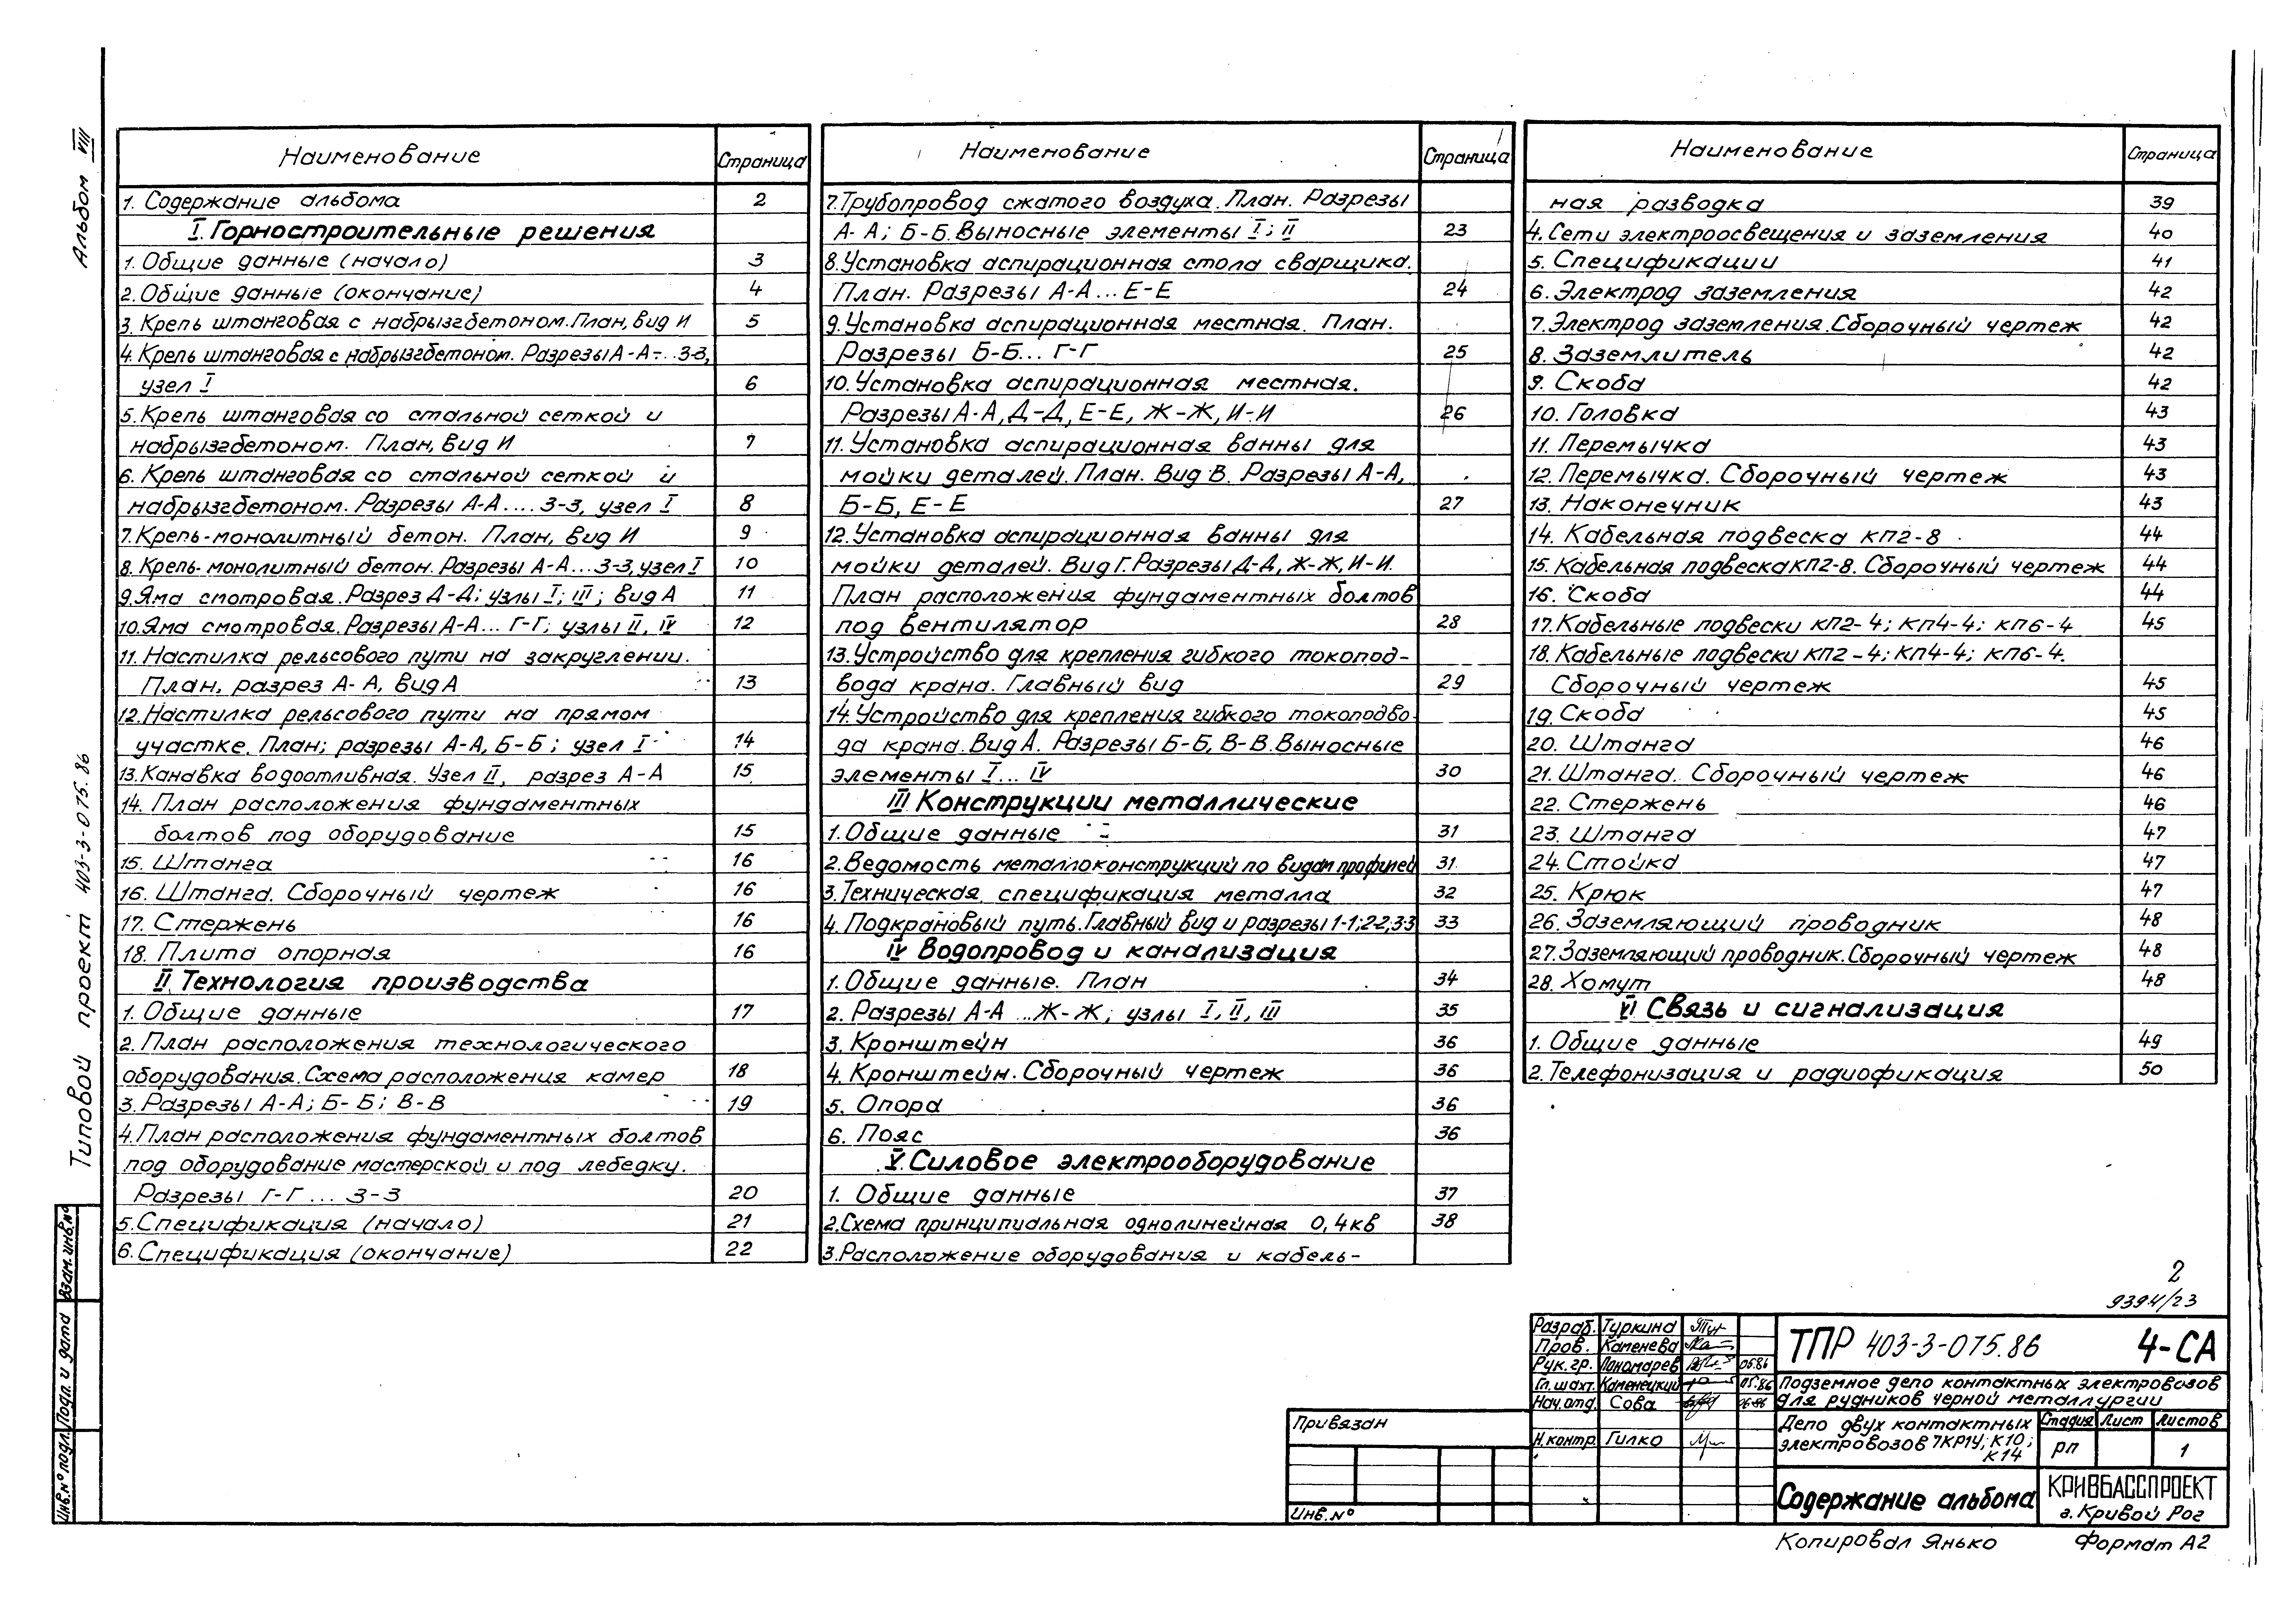 Альбом VIII
Типовой проект 403-3-075.86
Наименование Страница
1. Содержание альбома 2
I. Горностроительные решения
1. Общие данные (начало) 3
2. Общие данные (окончание) 4
3. Крепь штанговая с набрызгбетоном. План, вид И 5
4. Крепь штанговая с набрызгбетоном. Разрезы А-А-...З-З,
узел I 6
5. Крепь штанговая со стальной сеткой и
набрызгбетоном. План, вид И 7
6. Крепь штанговая со стальной сеткой и
набрызгбетоном. Разрезы А-А....З-З, узел I 8
7. Крепь-монолитный бетон. План, вид И 9
8. Крепь-монолитный бетон. Разрезы А-А...З-З, узел I 10
9. Яма смотровая. Разрез Д-Д; узлы I; III; вид А 11
10. Яма смотровая. Разрезы А-А... Г-Г; узлы II, IV 12
11. Настилка рельсового пути на закруглении.
План, разрез А-А, вид А 13
12. Настилка рельсового пути на прямом
участке. План; разрезы А-А, Б-Б; узел I 14
13. Канавка водоотливная. Узел II, разрез А-А 15
14. План расположения фундаментных
болтов под оборудование 15
15. Штанга 16
16. Штанга. Сборочный чертеж 16
17. Стержень 16
18. Плита опорная 16
II. Технология производства
1. Общие данные 17
2. План расположения технологического
оборудования. Схема расположения камер 18
3. Разрезы А-А; Б-Б; В-В 19
4. План расположения фундаментных болтов
под оборудование мастерской и под лебедку.
Разрезы Г-Г ... З-З 20
5. Спецификация (начало) 21
6. Спецификация (окончание) 22
Наименование Страница
7. Трубопровод сжатого воздуха. План. Разрезы
А-А; Б-Б. Выносные элементы I; II 23
8. Установка аспирационная стола сварщика.
План. Разрезы А-А ... Е-Е 24
9. Установка аспирационная местная. План.
Разрезы Б-Б... Г-Г 25
10. Установка аспирационная местная.
Разрезы А-А, Д-Д, Е-Е, Ж-Ж, И-И 26
11. Установка аспирационная ванны для
мойки деталей. План. Вид В. Разрезы А-А,
Б-Б, Е-Е 27
12. Установка аспирационная ванны для
мойки деталей. Вид Г. Разрезы Д-Д, Ж-Ж, И-И.
План расположения фундаментных болтов
под вентилятор 28
13. Устройство для крепления гибкого токопод-
вода крана. Главный вид 29
14. Устройство для крепления гибкого токоподво-
да крана. Вид А. Разрезы Б-Б, В-В. Выносные
элементы I... IV 30
III Конструкции металлические
1. Общие данные 31
2. Ведомость металлоконструкций по видам профилей 31
3. Техническая спецификация металла 32
4. Подкрановый путь. Главный вид и разрезы 1-1; 2-2; 3-3 33
IV Водопровод и канализация
1. Общие данные. План 34
2. Разрезы А-А ...Ж-Ж; узлы I, II, III 35
3. Кронштейн 36
4. Кронштейн. Сборочный чертеж 36
5. Опора 36
6. Пояс 36
V. Силовое электрооборудование
1. Общие данные 37
2. Схема принципиальная однолинейная 0,4кв 38
3. Расположение оборудования и кабель-
Наименование Страница
ная разводка 39
4. Сети электроосвещения и заземления 40
5. Спецификации 41
6. Электрод заземления 42
7. Электрод заземления. Сборочный чертеж 42
8. Заземлитель 42
9. Скоба 42
10. Головка 43
11. Перемычка 43
12. Перемычка. Сборочный чертеж 43
13. Наконечник 43
14. Кабельная подвеска КП2-8 44
15. Кабельная подвеска КП2-8. Сборочный чертеж 44
16. Скоба 44
17. Кабельные подвески КП2-4; КП4-4; КП6-4 45
18. Кабельные подвески КП2-4; КП4-4; КП6-4.
Сборочный чертеж 45
19. Скоба 45
20. Штанга 46
21. Штанга. Сборочный чертеж 46
22. Стержень 46
23. Штанга 47
24. Стойка 47
25. Крюк 47
26. Заземляющий проводник 48
27. Заземляющий проводник. Сборочный чертеж 48
28. Хомут 48
VI Связь и сигнализация
1. Общие данные 49
2. Телефонизация и радиофикация 50
2
9394/23
Взам. инв. №
Подл. и дата
Инв. № подл.
Привязан
Инв. №
Разраб. Туркина
Пров. Каменева
Рук. гр. Пономарев 06.86
Гл. шахт. Каменецкий 05.86
Нач. отд. Сова 06.86
Н. контр. Гилко
ТПР 403-3-075.86 4-СА
Подземное депо контактных электровозов
для рудников черной металлургии
Депо двух контактных
электровозов 7КР1У; К10;
К14
Стадия Лист Листов
РП 1
Содержание альбома
КРИВБАССПРОЕКТ
г. Кривой Рог
Копировал Янько Формат А2